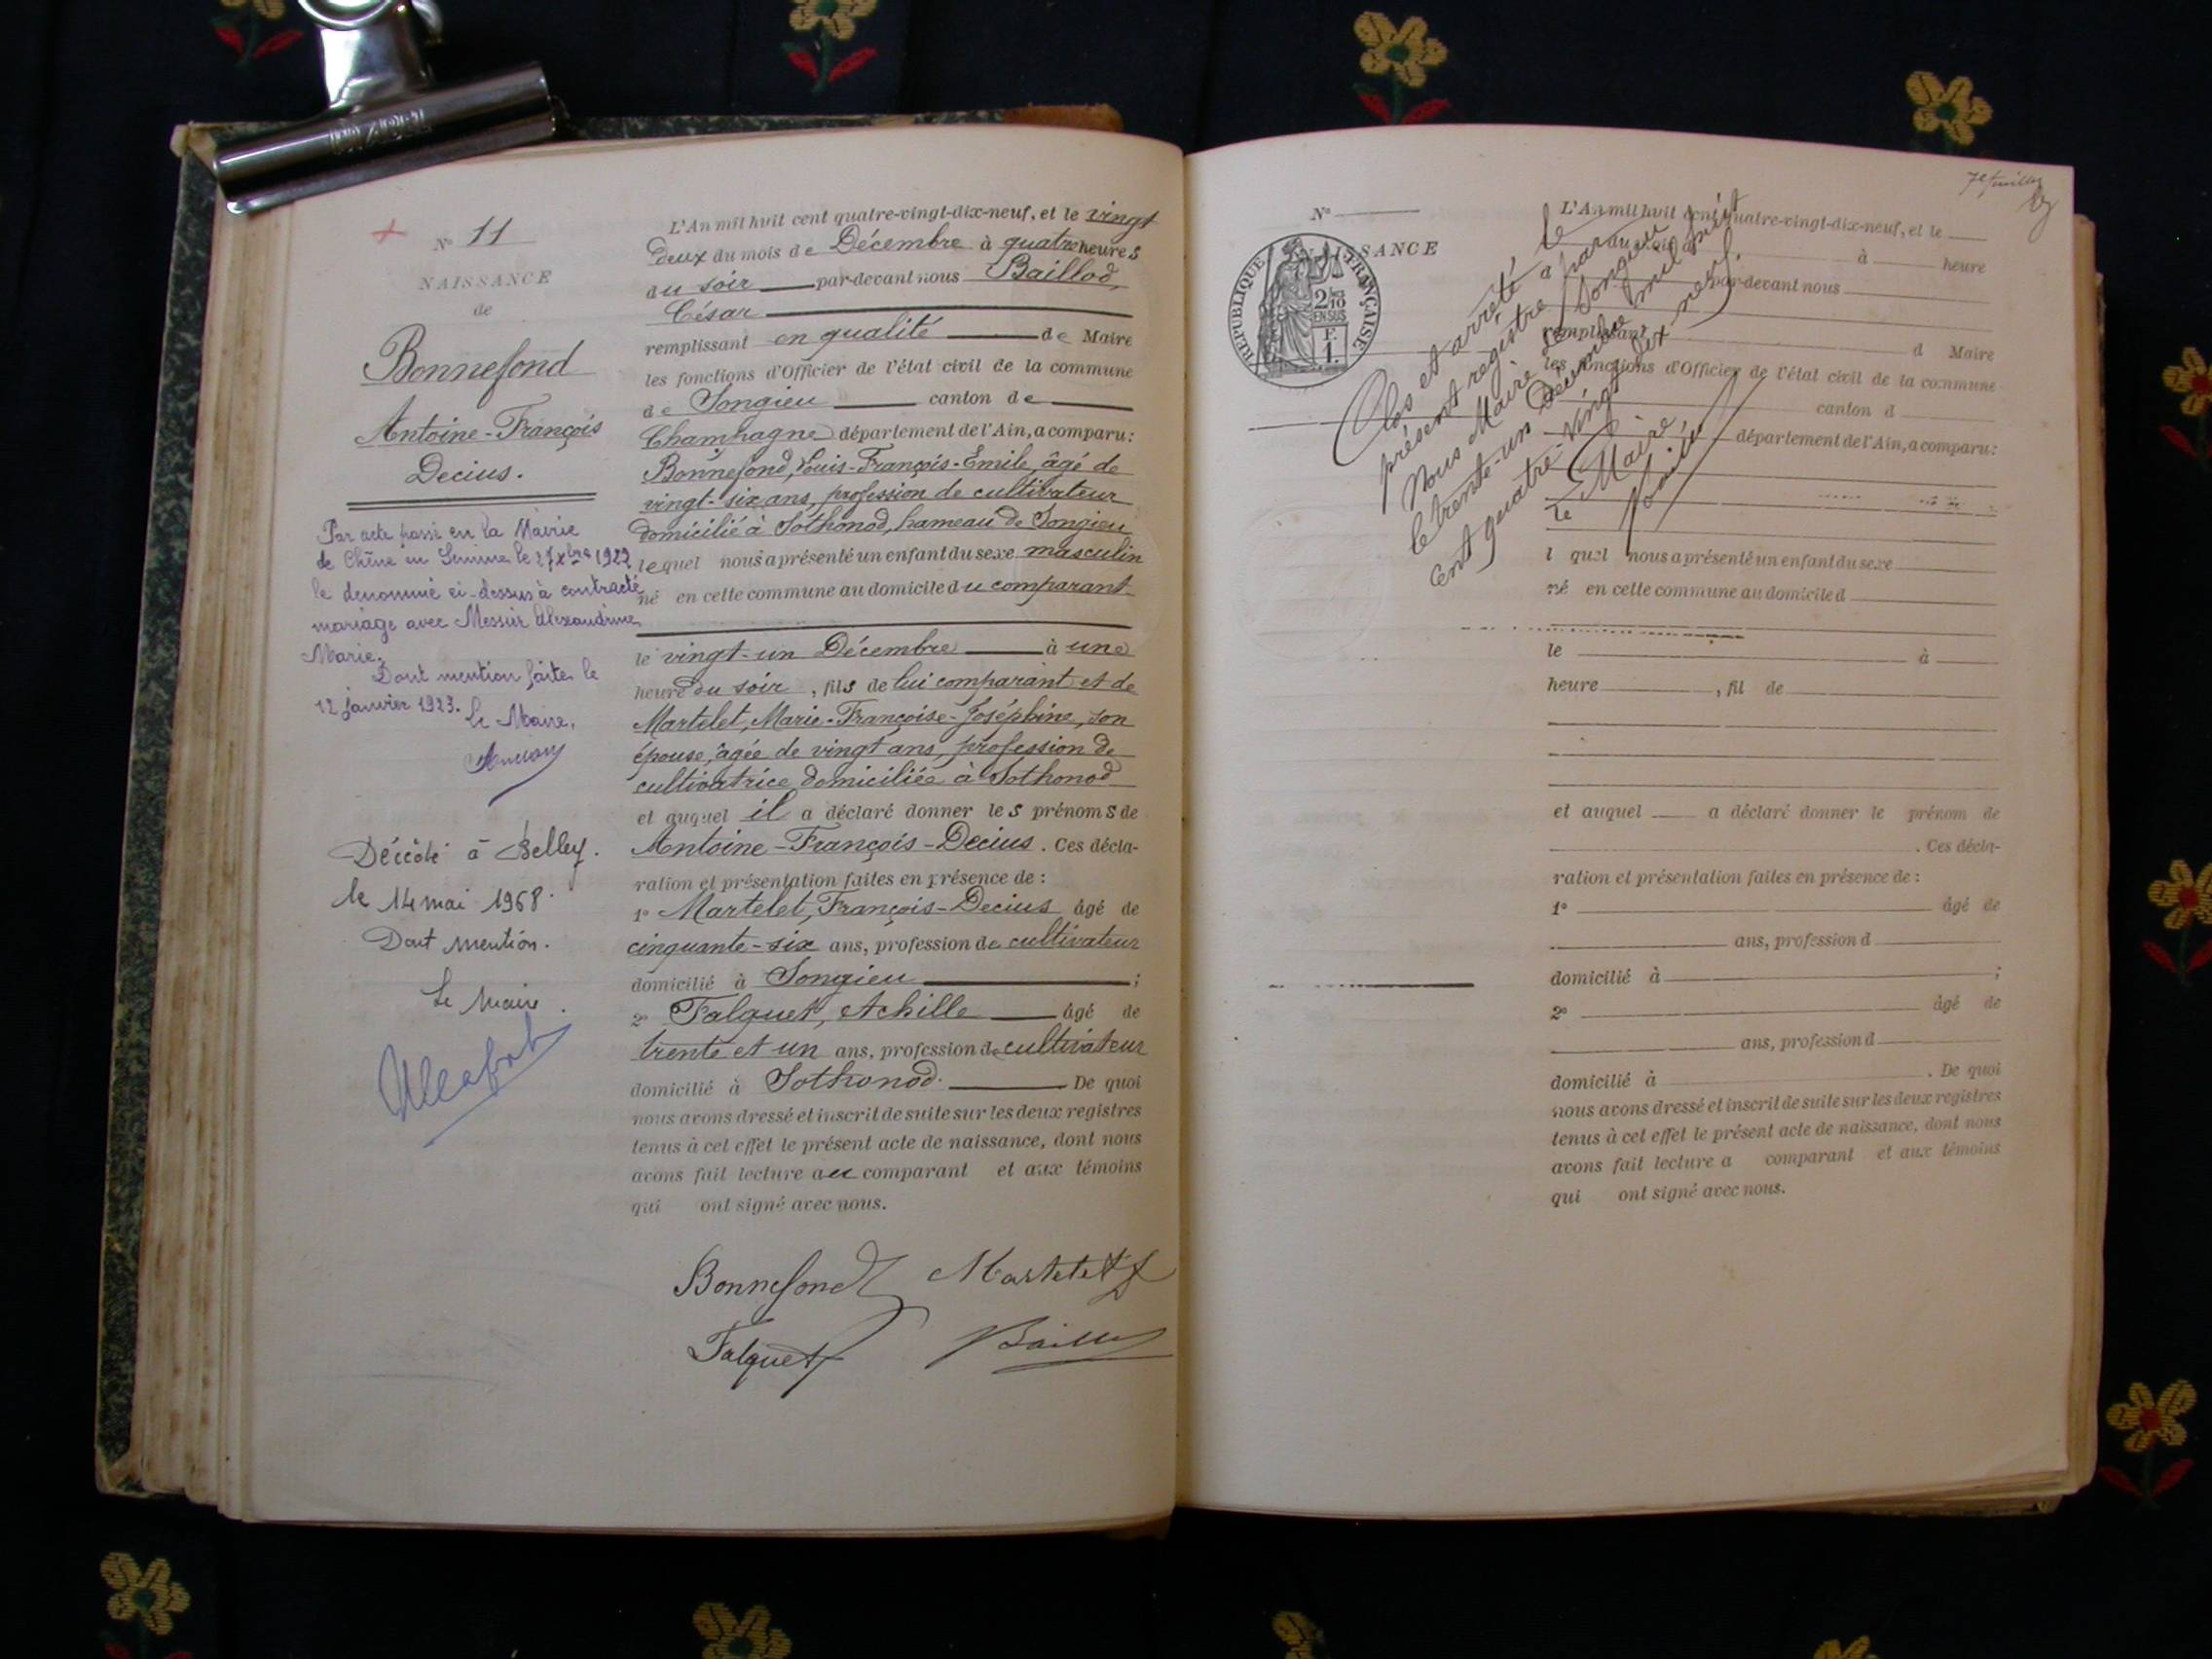 N° 11
NAISSANCE
de
Bonnefond
Antoine-François
Decius.
Par acte passé en la Mairie
de Chêne en Semine le 27 Xbre 1922
le dénommé ci-dessus à contracté
mariage avec Messier Alexandrine
Marie.
Dont mention faite le
12 janvier 1923.
Le Maire,
Décédé à Belley.
le 14 mai 1968.
Dont mention.
Le Maire.
L'An mil huit cent quatre-vingt-dix-neuf, et le vingt
deux du mois de Décembre à quatre heures
du soir par-devant nous Baillod,
César
remplissant en qualité de Maire
les fonctions d'Officier de l'état civil de la commune
de Songieu canton de
Champagne département de l'Ain, a comparu:
Bonnefond, Louis-François-Emile, âgé de
vingt-six ans, profession de cultivateur
domicilié à Sothonod, hameau de Songieu
lequel nous a présenté un enfant du sexe masculin
né en cette commune au domicile du comparant
le vingt-un Décembre à une
heure du soir, fils de lui comparant et de
Martelet, Marie-Françoise-Joséphine, son
épouse, âgée de vingt ans, profession de
cultivatrice domiciliée à Sothonod
et auquel il a déclaré donner les prénoms de
Antoine-François-Decius. Ces décla-
ration et présentation faites en présence de :
1° Martelet, François-Decius âgé de
cinquante-six ans, profession de cultivateur
domicilié à Songieu ;
2° Falquet, Achille âgé de
trente et un ans, profession de cultivateur
domicilié à Sothonod. De quoi
nous avons dressé et inscrit de suite sur les deux registres
tenus à cet effet le présent acte de naissance, dont nous
avons fait lecture au comparant et aux témoins
qui ont signé avec nous.
Bonnefond Martelet
Falquet Baillod
7e feuillet
N°
NAISSANCE
RÉPUBLIQUE FRANÇAISE
2/10
EN SUS
F.
1.
Clos et arrêté le
présent registre par
Nous Maire Songieu
le trente-un Décembre mil huit
cent quatre-vingt-dix neuf.
Le Maire,
Baillod
L'An mil huit cent quatre-vingt-dix-neuf, et le
du mois d à heure
par-devant nous
remplissant d Maire
les fonctions d'Officier de l'état civil de la commune
canton d
département de l'Ain, a comparu:
l quel nous a présenté un enfant du sexe
né en cette commune au domicile d
le à
heure , fil de
et auquel a déclaré donner le prénom de
. Ces décla-
ration et présentation faites en présence de :
1° âgé de
ans, profession d
domicilié à ;
2° âgé de
ans, profession d
domicilié à . De quoi
nous avons dressé et inscrit de suite sur les deux registres
tenus à cet effet le présent acte de naissance, dont nous
avons fait lecture a comparant et aux témoins
qui ont signé avec nous.